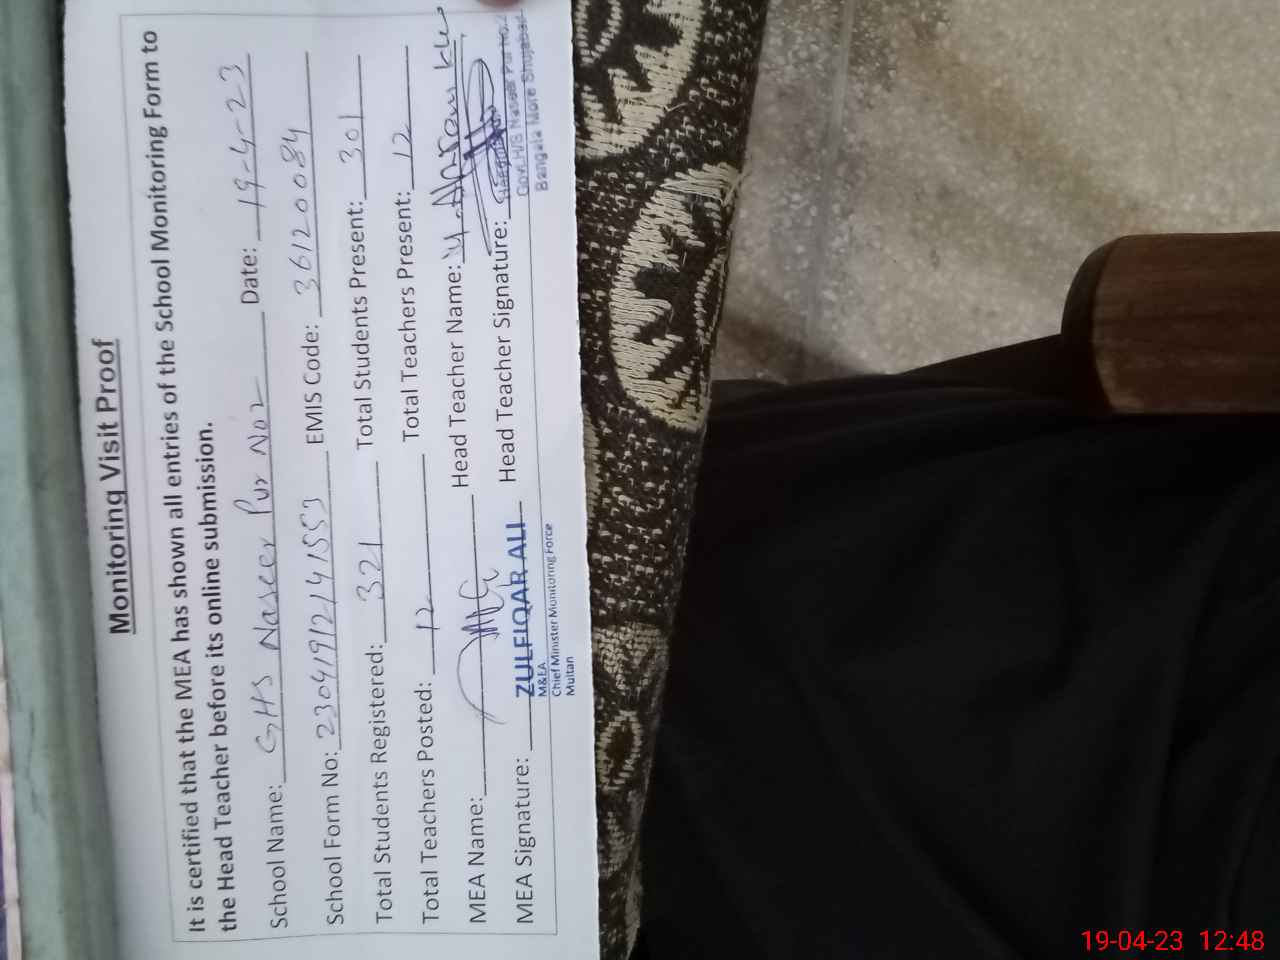 Monitoring Visit Proof
It is certified that the MEA has shown all entries of the School Monitoring Form to
the Head Teacher before its online submission.
School Name: GHS Naseer Pur No2 Date: 19-4-23
School Form No: 23041912141553 EMIS Code: 36120084
Total Students Registered: 321 Total Students Present: 301
Total Teachers Posted: 12 Total Teachers Present: 12
MEA Name: Head Teacher Name: M. Akram
MEA Signature: Head Teacher Signature:
ZULFIQAR ALI
M&EA
Chief Minister Monitoring Force
Multan
Govt.H/S Naseer Pur No.2
Bangala More Shujabad
19-04-23 12:48